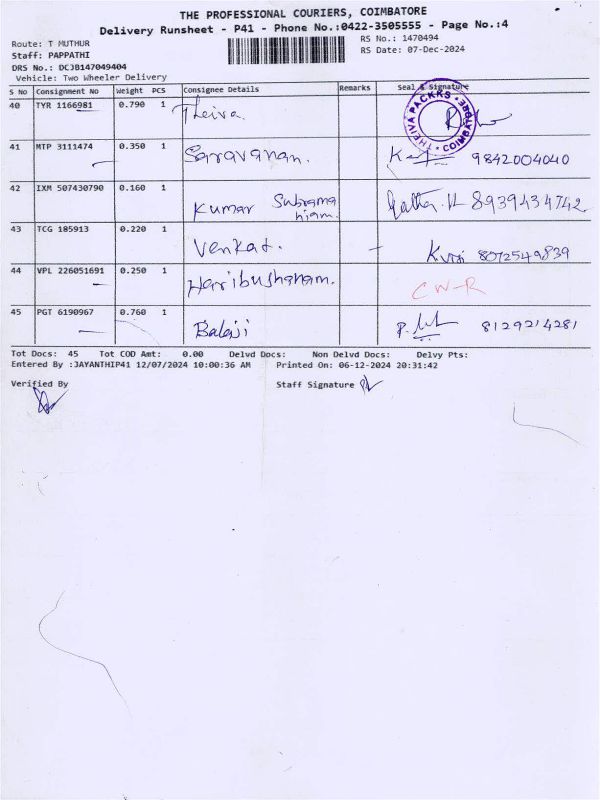 THE PROFESSIONAL COURIERS, COIMBATORE
Delivery Runsheet - P41 - Phone No.:0422-3505555 - Page No.:4
Route: T MUTHUR
RS No.: 1470494
Staff: PAPPATHI
RS Date: 07-Dec-2024
DRS No.: DCJB147049404
Vehicle: Two Wheeler Delivery
S No Consignment No Weight PCS Consignee Details Remarks Seal & Signature
40 TYR 1166981 0.790 1 Theiva.
THEIVA PACKKS COIMBATORE
41 MTP 3111474 0.350 1 Saravanan. 9842004040
42 IXM 507430790 0.160 1 Kumar Subrama
niam. 8939434742
43 TCG 185913 0.220 1 Venkat. 8072549839
44 VPL 226051691 0.250 1 Haribushanam. CW-R
45 PGT 6190967 0.760 1 Balaji 8129214281
Tot Docs: 45 Tot COD Amt: 0.00 Delvd Docs: Non Delvd Docs: Delvy Pts:
Entered By :JAYANTHIP41 12/07/2024 10:00:36 AM Printed On: 06-12-2024 20:31:42
Verified By Staff Signature